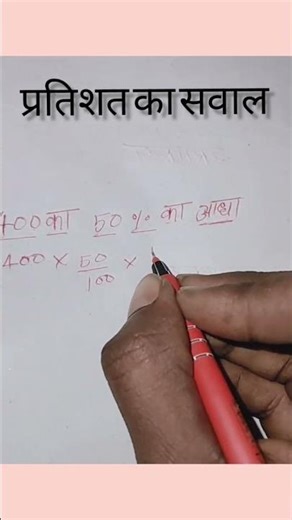 प्रतिशत का सवाल
400 का 50 % का आधा
400 × 50/100 ×